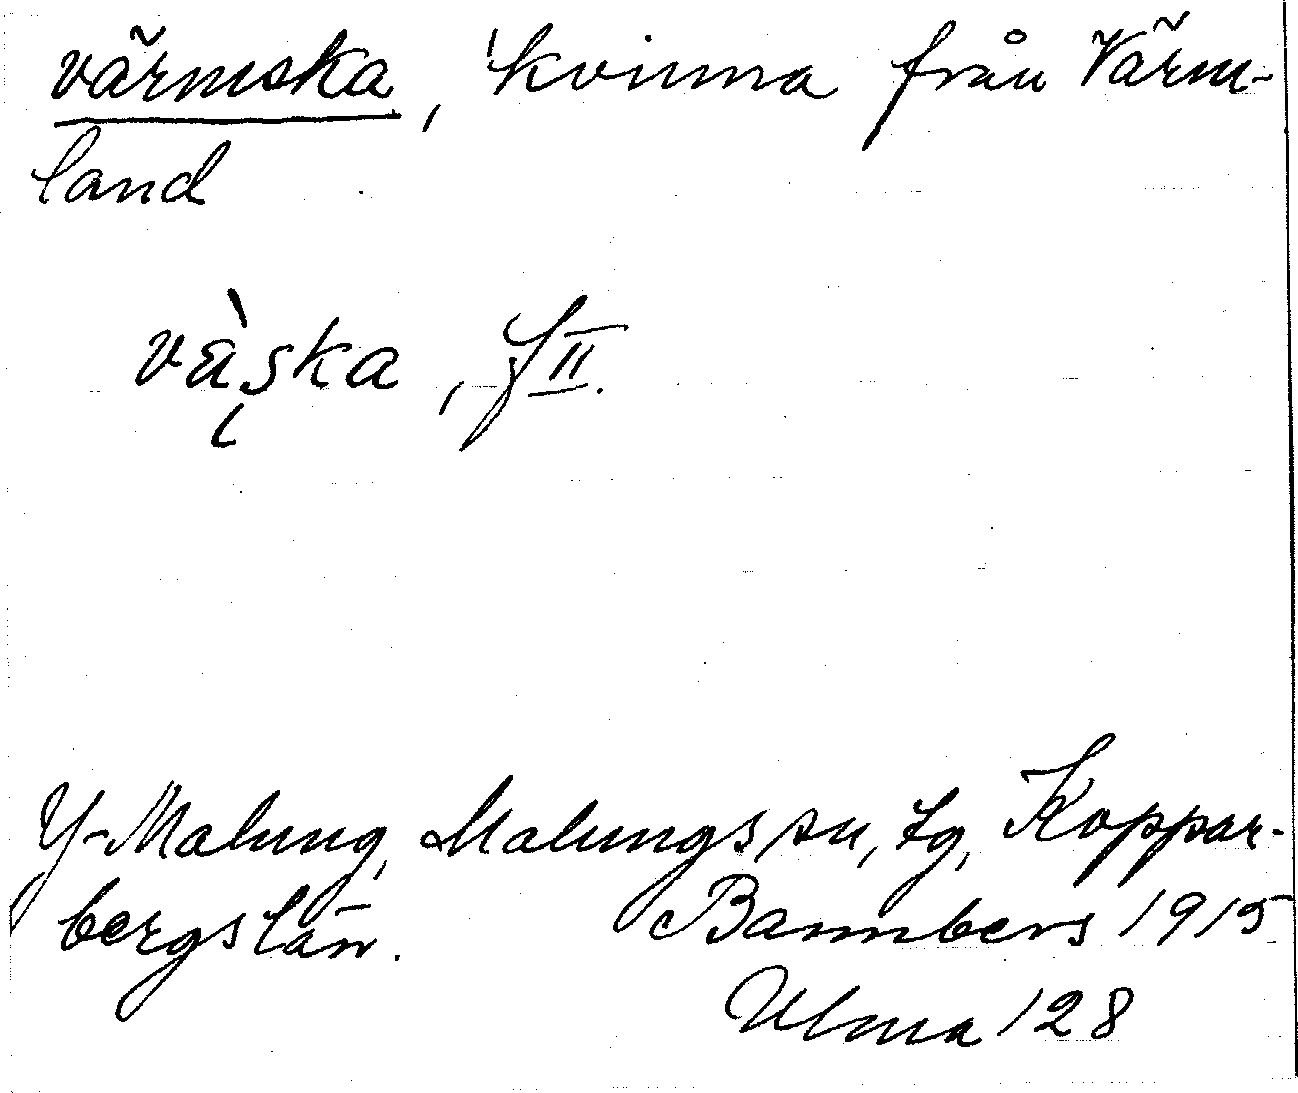 värmska, 'kvinna från Värm-
land
vàska, f II.
Y-Malung, Malungs sn, tg, Koppar-
bergs län.
Bannbers 1915
Ulma 128